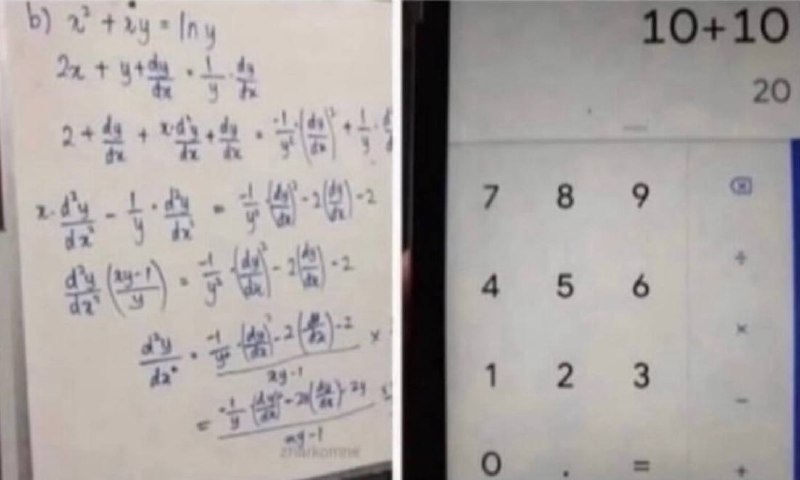 b) x² + xy = ln y
2x + y + dy/dx · 1/y · dy/dx
2 + dy/dx + x·d²y/dx² + dy/dx = -1/y² · (dy/dx)² + 1/y ·
x · d²y/dx² - 1/y · d²y/dx² = -1/y² · (dy/dx)² - 2(dy/dx) - 2
d²y/dx² (xy-1/y) = -1/y² · (dy/dx)² - 2(dy/dx) - 2
d²y/dx² = -1/y² · (dy/dx)² - 2(dy/dx) - 2 / xy-1 ×
= -1/y (dy/dx)² - 2y(dy/dx) - 2y / xy-1
znarkomne
10+10
20
7 8 9
4 5 6 ÷
1 2 3 ×
0 . = −
+